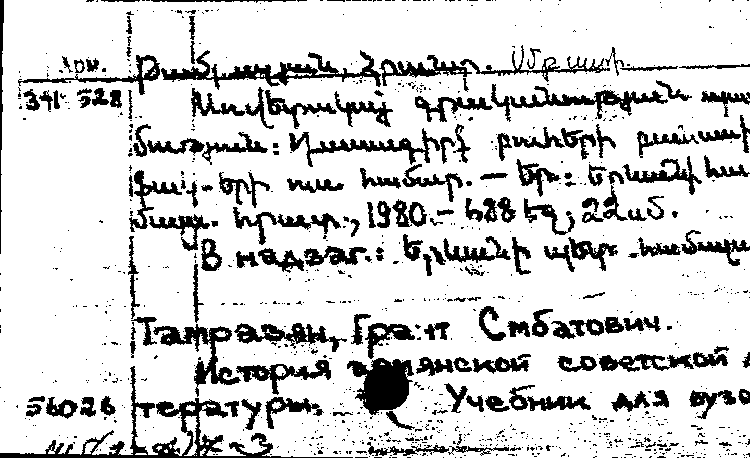 Թամրազյան, Հրանտ. Սմբատի
341 528 Սովետահայ գրականության պատ
մություն: Դասագիրք բուհերի բանասիր
ֆակ-երի ուս. համար. — Եր.: Երևանի հա
մալս. հրատ., 1980. — 488 էջ, 22 սմ.
В надзаг.: Երևանի պետ. համալս
Тамразян, Грант Смбатович.
История армянской советской л
56026 тературы. Учебник для вузо